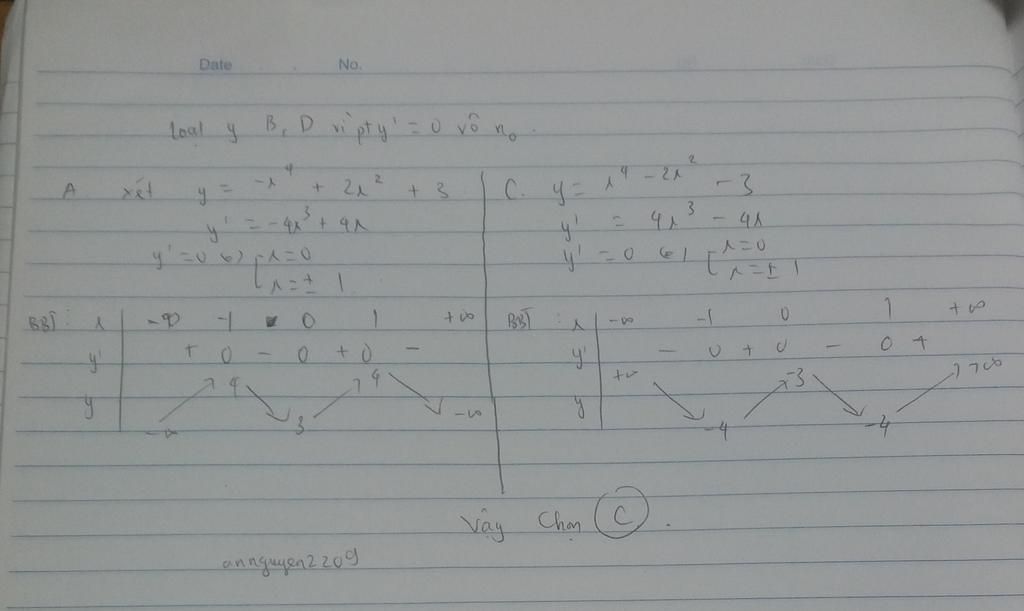 Date No.
loại y B, D vì pt y' = 0 vô n₀.
A xét y = -x⁴ + 2x² + 3
y' = -4x³ + 4x
y' = 0 (=) [x = 0
x = ± 1
BBT: x -∞ -1 0 1 +∞
y' + 0 - 0 + 0 -
y -∞ ↗ 4 ↘ 3 ↗ 4 ↘ -∞
C. y = x⁴ - 2x² - 3
y' = 4x³ - 4x
y' = 0 (=) [x = 0
x = ± 1
BBT: x -∞ -1 0 1 +∞
y' - 0 + 0 - 0 +
y +∞ ↘ -4 ↗ -3 ↘ -4 ↗ +∞
Vậy Chọn C.
annguyen2209